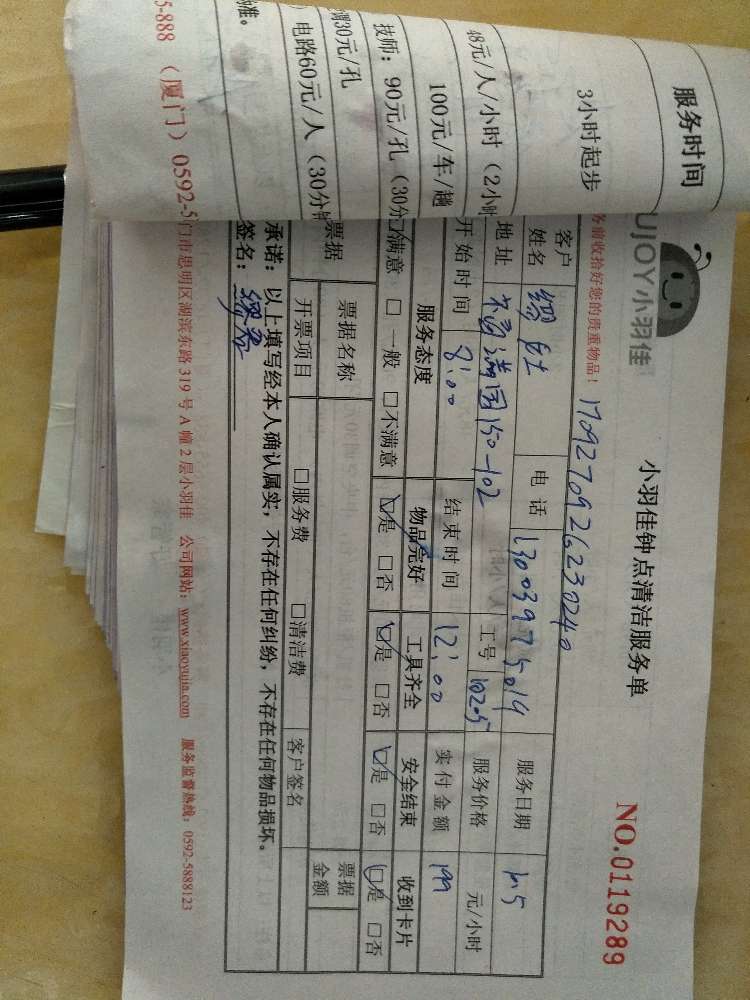 服务时间
3小时起步
48元/人/小时（2小时
100元/车/趟
技师：90元/孔（30分
30元/孔
电路60元/人（30分钟
准。
5-888 （厦门）0592-5
UJOY小羽佳
小羽佳钟点清洁服务单
NO.0119289
务前收拾好您的贵重物品！
1709270926230240
客户姓名 电话 13003975019 服务日期
地址 150-102 工号 1025 服务价格 元/小时
开始时间 8:00 结束时间 12:00 实付金额 199
服务态度 物品完好 工具齐全 安全结束 收到卡片
□满意 □一般 □不满意 □是 □否 □是 □否 □是 □否 □是 □否
票据 票据名称 票据金额
开票项目 □服务费 □清洁费 客户签名
承诺：以上填写经本人确认属实，不存在任何纠纷，不存在任何物品损坏。
签名：
门市思明区湖滨东路319号A幢2层小羽佳 公司网站：www.xiaoyujia.com 服务监督热线：0592-5888123